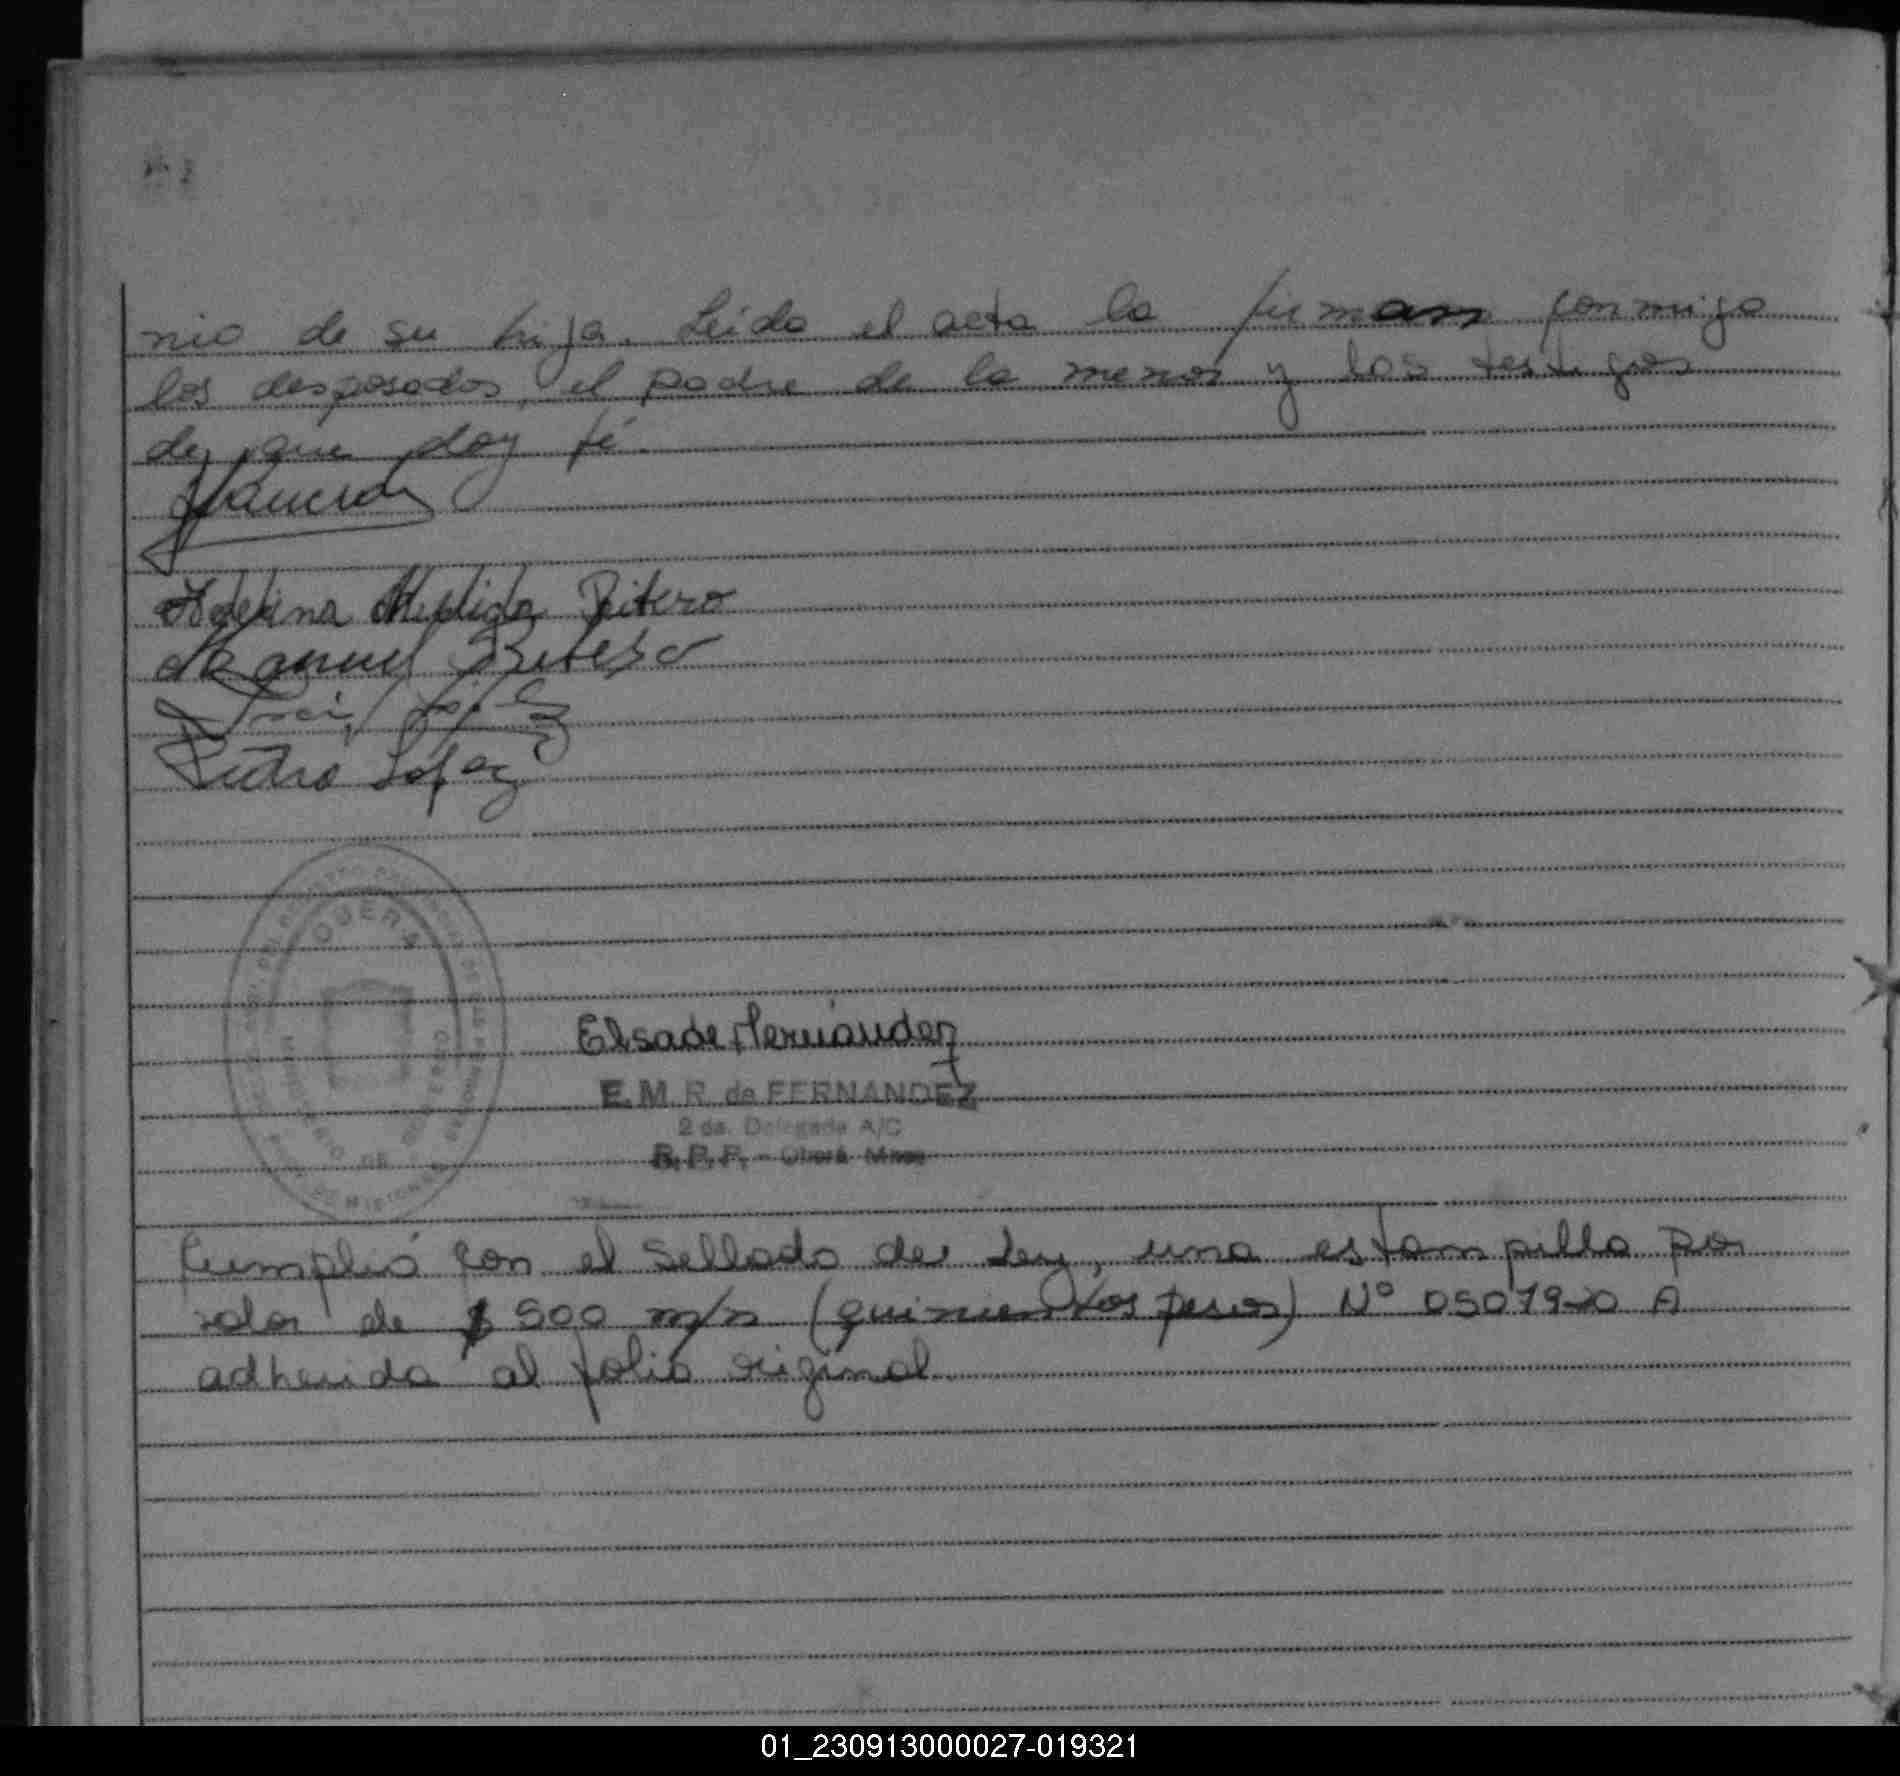 nio de su hija. Leida el acta la firman conmigo
los desposados, el padre de la menor y los testigos
de que doy fé.
Medida Ritero
Manuel Ritero
Pedro López
OBERA
MINISTERIO DE GOBIERNO
DE MISIONES
Elsa de Fernández
E. M. R. de FERNANDEZ
2 da. Delegada A/C
R. P. P. - Oberá Mnes
Cumplió con el sellado de Ley, una estampilla por
valor de $ 500 m/n (quinientos pesos) Nº 0507920 A
adherida al folio original
01_230913000027-019321